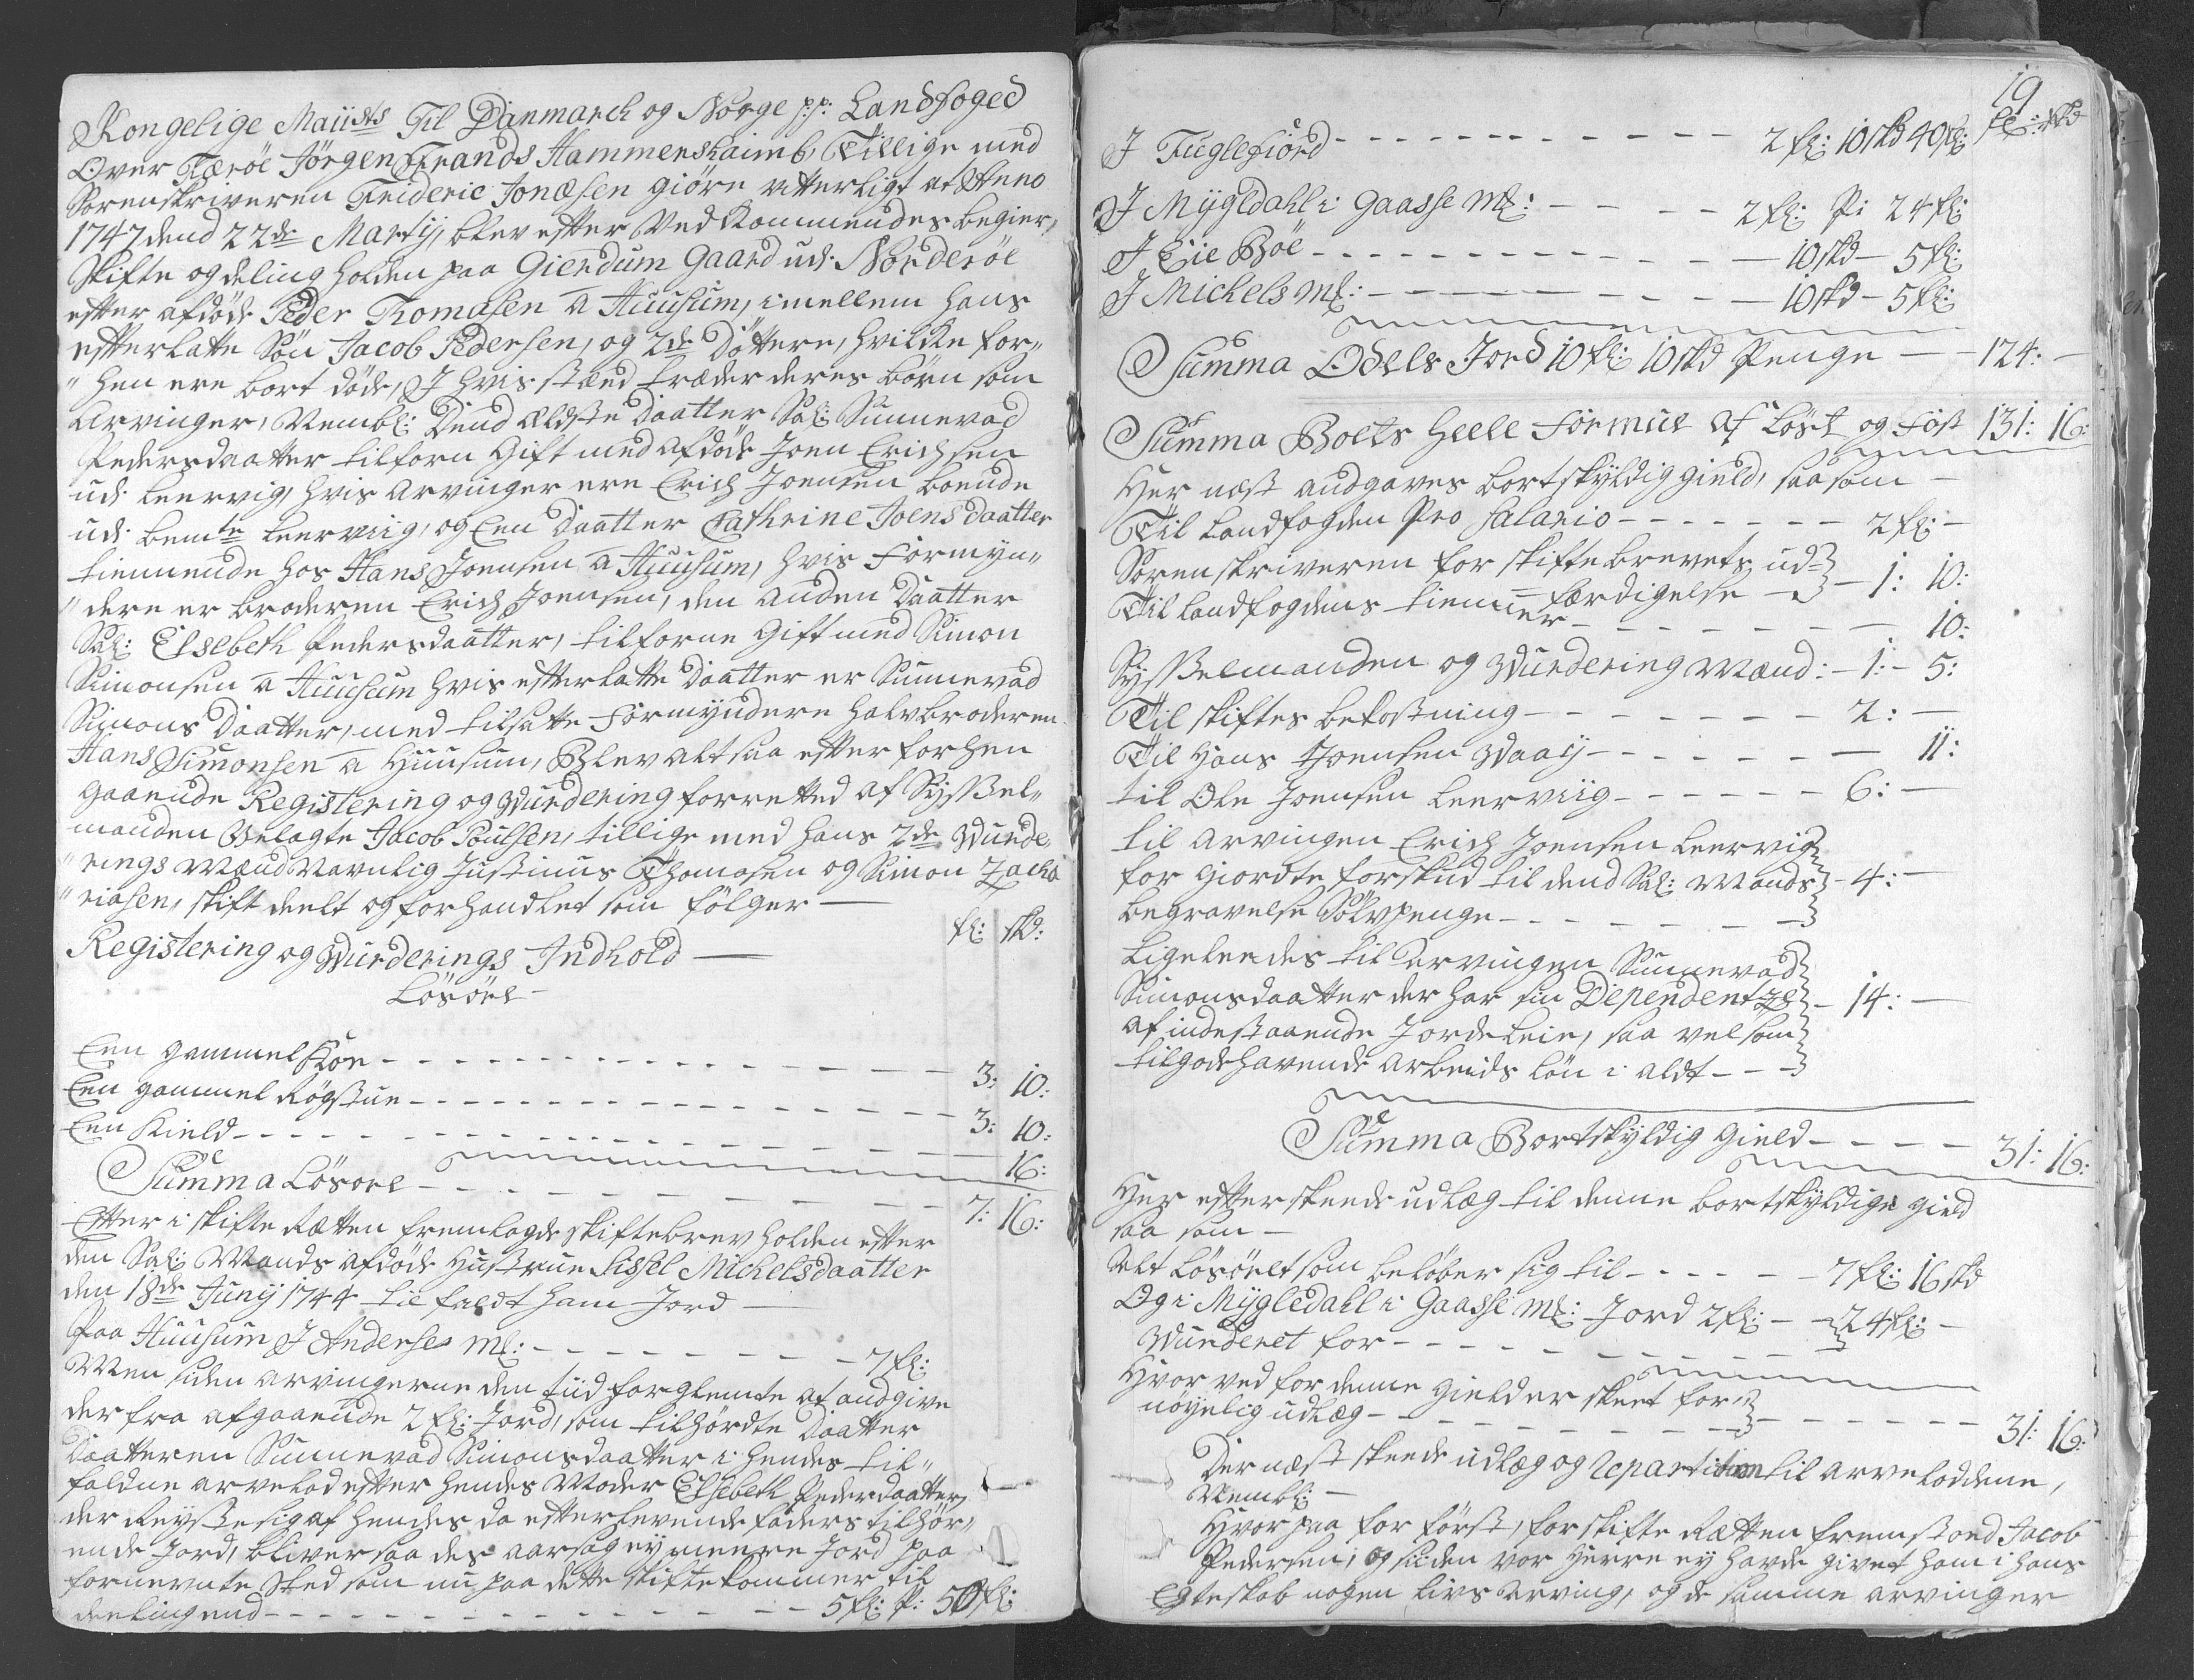 Kongelige Maiists Til Danmarch og Norge p:p: Landfoged
Over Færöe Jörgen Frands Hammershaimb, Tillige med
Sorenskriveren Frideric Jonæsen giöre vitterligt at Anno
1747 dend 22de Marty, blev efter Vedkommendes begier,
Skifte og deeling holden paa Gierdum Gaard udi Norderöe
efter afdöde Peder Tomasen a Huusum, imellem hans
efterlatte Sön Jacob Pedersen, og 2de Döttere, hvilcke for,,
,, hen ere bort döde, J hvis stæd træder deres börn som
Arvinger, Nembl: Dend ældste Daatter Sal: Sunnevad
Pedersdaatter tilforn Gift med afdöde Joen Erichsen
udi Leervig, hvis Arvinger ere Erich Joensen boende
udi bemte Leerviig, og Een Daatter Cathrine Joensdaatter
tiennende hos Hans Joensen a Huusum, hvis Formyn,,
,, dere er broderen Erich Joensen, den anden Daatter
Sal: Elsebeth Pedersdaatter, tilforne Gift med Simon
Simonsen a Huusum hvis efterlatte Daatter er Sunnevad
Simons Daatter, med tilsatte Formyndere halvbroderen
Hans Simonsen a Huusum, Blev alt saa efter forhen
gaaende Registering og Vurdering forrettet af Sysszel,,
manden Velagte Jacob Poulsen, tillige med hans 2de Vurde,,
,, rings Mænd Navnlig Justinus Thomasen og Simon Zacha
,, riasen, skift deelt og forhandlet som fölger —
fl: skl:
Registering og Vurderings Indhold —
Lösöre —
Een gammel Koe - - - 3: 10:
Een gammel Rögstue - - - 3: 10:
Een Kield - - - 16:
Summa Lösöre - - - 7: 16:
Efter i skifte Retten fremlagde skiftebrev holden efter
den Sal: Mands afdöde Hustrue Sissel Michelsdaatter
den 18de Juny 1744 til faldt ham Jord —
Paa Huusum J Anderses Ml: - - - 7 fl:
Men siden arvingerne den tiid forglemte at andgive
der fra afgaaende 2 fl: Jord, som tilhördte Daatter
Daatteren Sunnevad Simonsdaatter i hendes til,,
faldne arvelod efter hendes Moder Elsebeth Pederdaatter,
der Reyste sig af hendes da efterlevende faders tilhör,,
ende Jord, bliver saa des aarsag ey meere Jord paa
fornevnte Sted som nu paa dette skifte kommer til
deeling end - - - 5 fl: P: 50 fl:
19
fl: skl
J Fuglefiörd - - - 2 fl: 10 skl 40 fl:
J Mÿgledahl i Gaasse Ml: - - - 2 fl: P: 24 fl:
J Eie Böe - - - 10 skl - 5 fl:
J Michels Ml: - - - 10 skl - 5 fl:
Summa Odels Jord 10 fl: 10 skl Penge — 124: —
Summa Boets Heele Formue af Löst og Fast 131: 16:
Her næst andgaves bortskyldig gield, saa som —
Til Landfogden Pro Salario - - - 2 fl: —
Sorenskriveren for skiftebrevets ud=
færdigelse — 1: 10:
Til Landfogdens tienner - - - 10:
Sysszelmanden og Vurdering Mænd: - 1: - 5:
Til skiftes bekostning - - - 2: —
Til Hans Joensen Vaaÿ - - - 11:
til Ole Joensen Leerviig - - - 6: —
til Arvingen Erich Joensen Leervig
for giordte forskud til dend Sal: Mands - 4: —
begravelse Sölvpenge - - -
Ligeledes til Arvingen Sunnevad
Simonsdaatter der har sin Dependentze - 14: —
af indestaaende Jordeleie, saa vel som
tilgodehavende Arbeids lön i alt - - -
Summa Bortskyldig Gield - - - 31: 16:
Her efter skeede udlæg til denne bortskyldige gield
saa som —
Alt Lösöret som belöber sig til - - - 7 fl: 16 skl
Og i Mÿgledahl i Gaasse Ml: Jord 2 fl: - 24 fl: -
Vurderet for - - -
Hvor ved for denne Gield er skeet for,,
nöyelig udlæg - - - 31: 16:
Der næst skeede udlæg og repartition til Arveloddene,
Nembl: —
Hvor paa for först, for skifte Retten fremstoed Jacob
Pedersen, og siden vor Herre ey havde givet ham i hans
Egteskab nogen livs Arving, og de samme arvinger